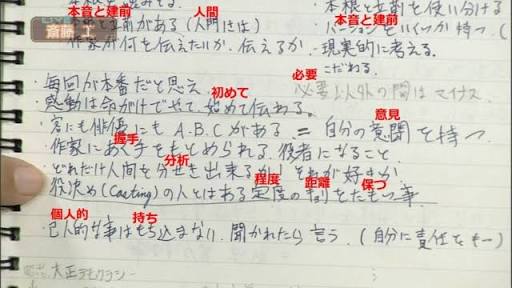 本音と建前 人間 本音と建前
LIVE
斎藤 工
本音と立前がある（人間さは） 本根と立前を使い分ける
作家が何を伝えたいか、伝えるか 現実的に考える。
こだわる。
必要
・毎回が本番だと思え 必要以外の間はマイナス
初めて
・感動は命がけでやって、始めて伝わる。
意見
・客にも俳優にもA.B.Cがある = 自分の意聞を持つ
握手
・作家にあく手をもとめられる役者になること
分析
・どれだけ人間を分せき出来るか! それが好きか
程度 距離 保つ
役決め(Casting)の人とはある定度の割をたもつ事
個人的 持ち
・己人的な事はもち込まない。聞かれたら言う。(自分に責任をも
大正デモクラシー